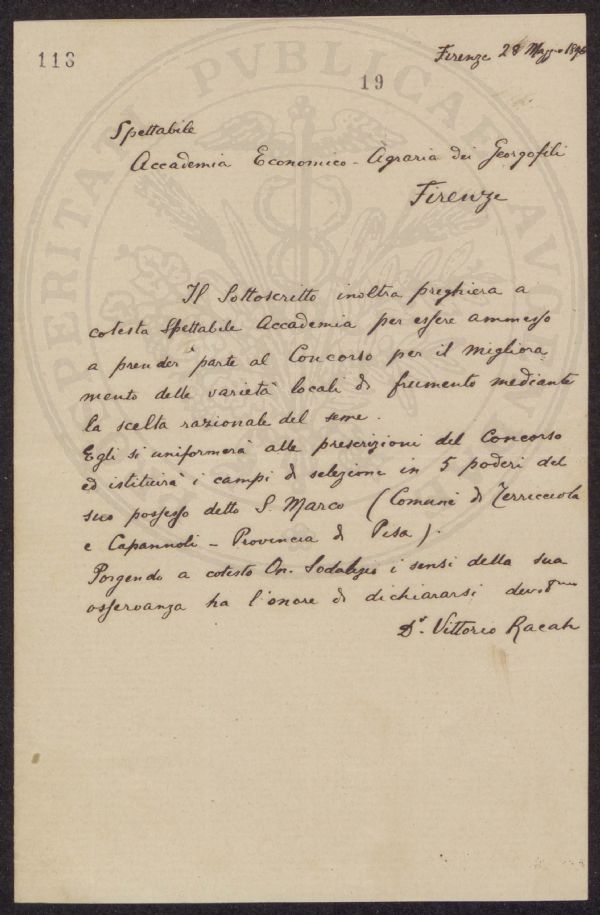 113
Firenze 28 Maggio
19
Spettabile
Accademia Economico-Agraria dei Georgofili
Firenze
Il Sottoscritto inoltra preghiera a
cotesta Spettabile Accademia per essere ammesso
a prender parte al Concorso per il migliora
mento delle varietà locali di frumento mediante
la scelta razionale del seme.
Egli si uniformerà alle prescrizioni del Concorso
ed istituirà i campi di selezione in 5 poderi del
suo possesso detto S. Marco (Comuni di Terricciola
e Capannoli - Provincia di Pisa).
Porgendo a cotesto On. Sodalizio i sensi della sua
osservanza ha l'onore di dichiararsi dev.mo
Dr. Vittorio Racah
PUBLICAE